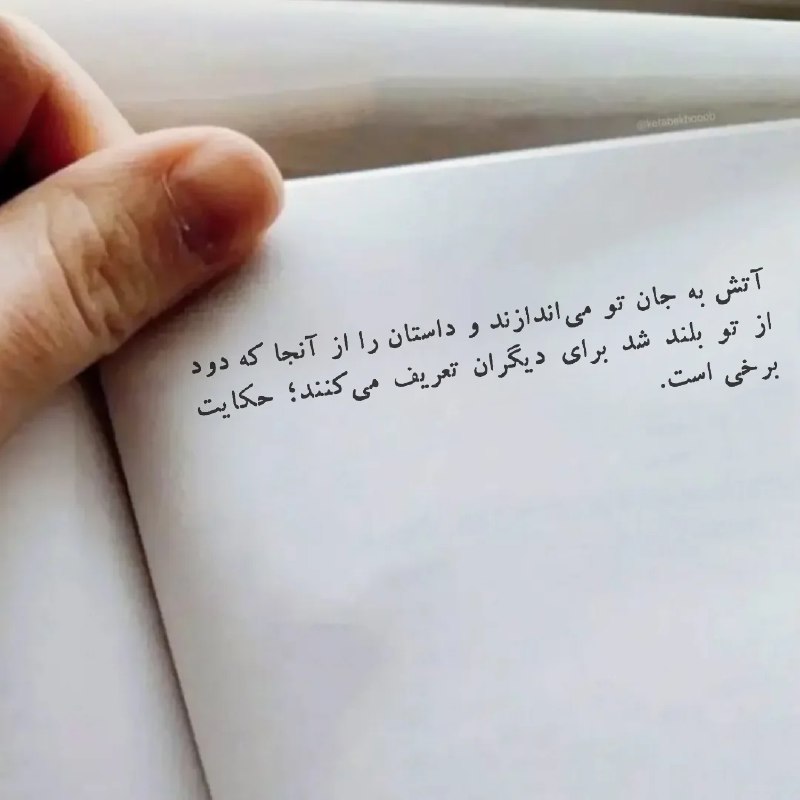 @ketabekhooob
آتش به جان تو می‌اندازند و داستان را از آنجا که دود
از تو بلند شد برای دیگران تعریف می‌کنند؛ حکایت
برخی است.